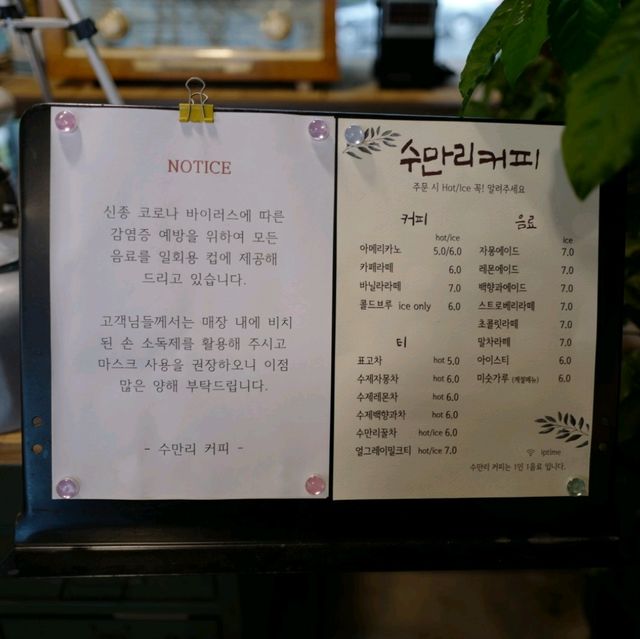 NOTICE
신종 코로나 바이러스에 따른
감염증 예방을 위하여 모든
음료를 일회용 컵에 제공해
드리고 있습니다.
고객님들께서는 매장 내에 비치
된 손 소독제를 활용해 주시고
마스크 사용을 권장하오니 이점
많은 양해 부탁드립니다.
- 수만리 커피 -
수만리커피
주문 시 Hot/Ice 꼭! 알려주세요
커피
hot/ice
아메리카노 5.0/6.0
카페라떼 6.0
바닐라라떼 7.0
콜드브루 ice only 6.0
티
표고차 hot 5.0
수제자몽차 hot 6.0
수제레몬차 hot 6.0
수제백향과차 hot 6.0
수만리꿀차 hot/ice 6.0
얼그레이밀크티 hot/ice 7.0
음료
ice
자몽에이드 7.0
레몬에이드 7.0
백향과에이드 7.0
스트로베리라떼 7.0
초콜릿라떼 7.0
말차라떼 7.0
아이스티 6.0
미숫가루 (계절메뉴) 6.0
iptime
수만리 커피는 1인 1음료 입니다.